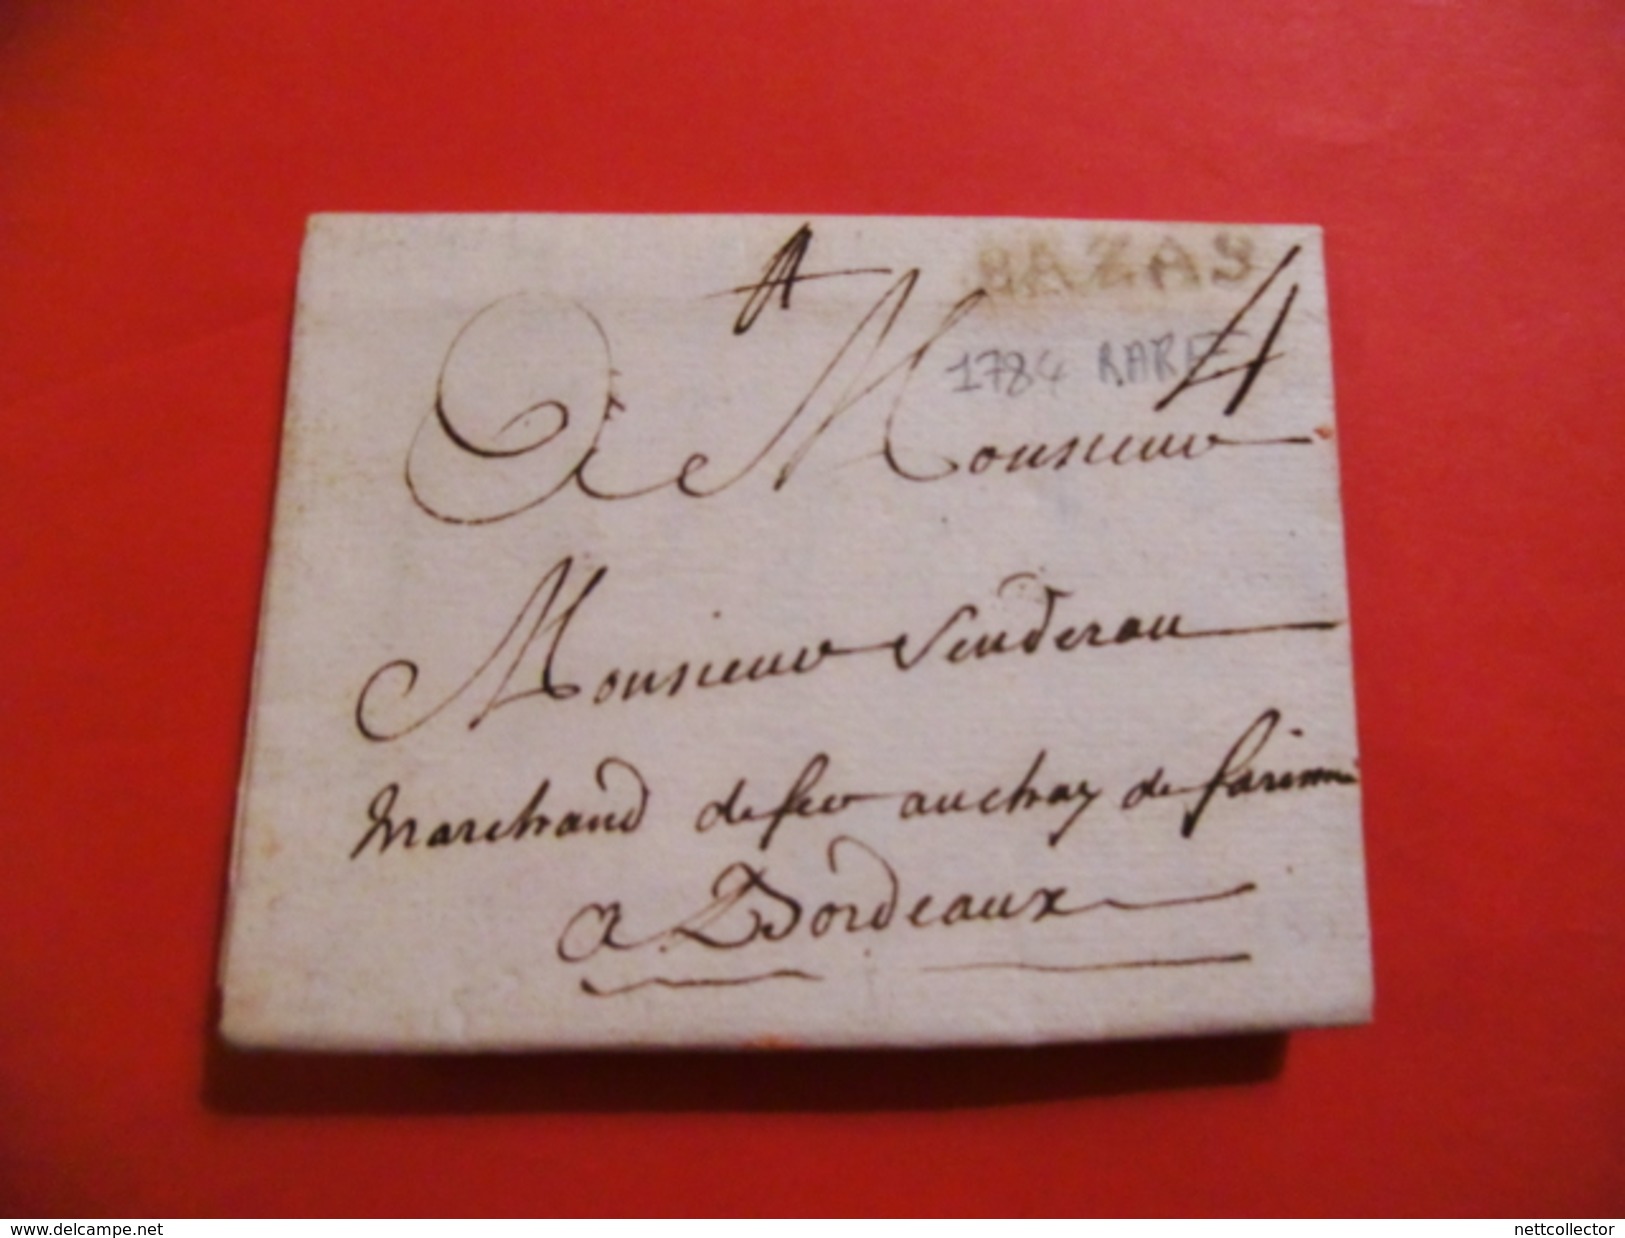 BAZAS
4
1784 RARE
A Monsieur
Monsieur Senderau
Marchand de fer au chay de farinne
a Bordeaux
www.delcampe.net
nettcollector